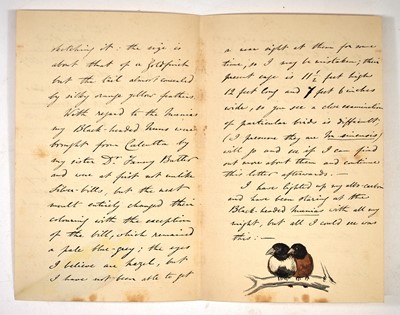 sketching it: the size is
about that of a Goldfinch
but the tail almost concealed
by silky orange yellow feathers.
With regard to the Manias
my Black-headed Nuns were
brought from Calcutta by
my sister Dr. Fanny Butler
and were at first not unlike
Silver-bills, but the next
moult entirely changed their
colouring with the exception
of the bill, which remained
a pale blue-grey; the eyes
I believe are hazel, but
I have not been able to get
a near sight at them for some
time, so I may be mistaken; their
present cage is 11½ feet high
12 feet long and 7 feet 6 inches
wide, so you see a close examination
of particular birds is difficult;
(I presume they are M. sinensis)
will go and see if I can find
out more about them and continue
this letter afterwards.—
I have lighted up my
and have been staring at the
Black-headed Manias with all my
might, but all I could see was
this:—